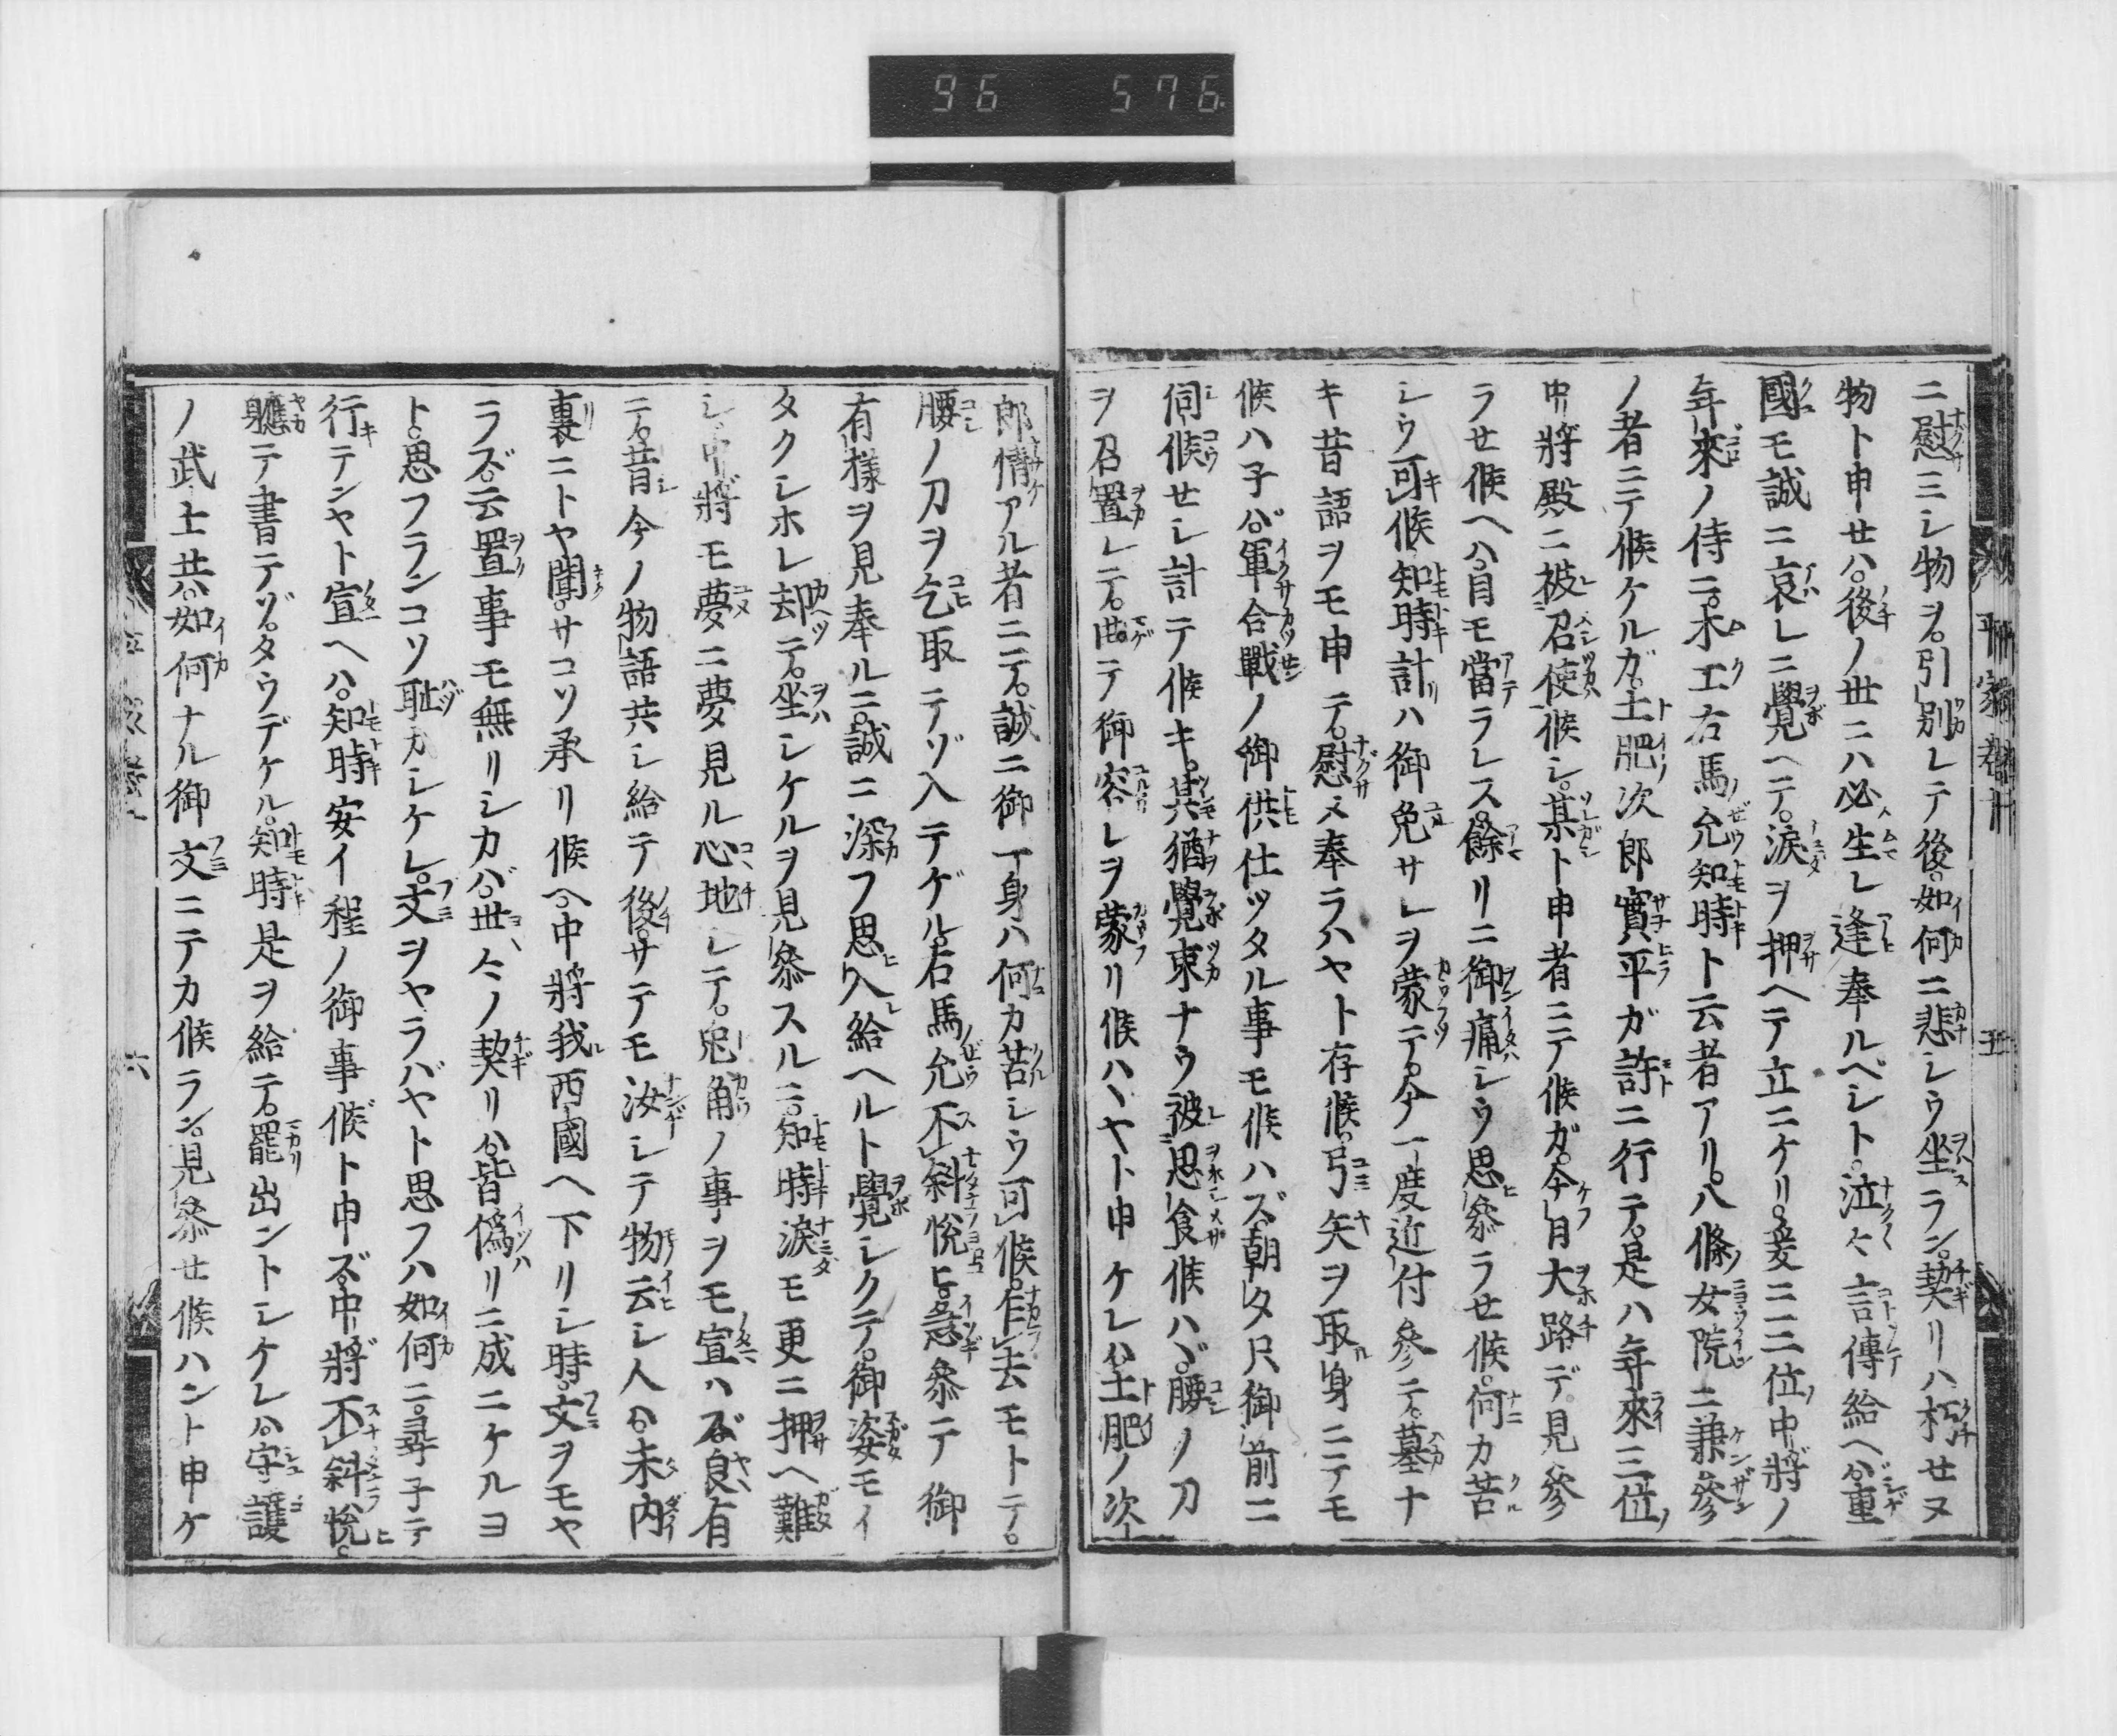 96 576
平家巻十
五
ニ慰ミシ物ヲ。引別レテ後。如何ニ悲シウ坐ラン。契リハ朽セヌ
物ト申セハ。後ノ世ニハ必生レ逢奉ルベシト。泣々言傳給ヘハ。重
國モ誠ニ哀レニ覺ヘテ。涙ヲ押ヘテ立ニケリ。爰ニ三位中將ノ
年來ノ侍ニ。木工右馬允知時ト云者アリ。八條女院ニ兼參
ノ者ニテ候ケルガ。土肥次郎實平ガ許ニ行テ。是ハ年來三位
中將殿ニ被召使候シ。某ト申者ニテ候ガ。今日大路デ見參
ラセ候ヘハ。目モ當ラレス。餘リニ御痛シウ思參ラセ候。何カ苦
シウ可候。知時計ハ御免サレヲ蒙テ。今一度近付參テ。墓ナ
キ昔語ヲモ申テ。慰メ奉ラハヤト存候。弓矢ヲ取身ニテモ
候ハ子バ。軍合戰ノ御供仕ツタル事モ候ハズ。朝夕只御前ニ
伺候セシ計テ候キ。其猶覺束ナウ被思食候ハヾ。腰ノ刀
ヲ召置レテ。曲テ御容レヲ蒙リ候ハヽヤト申ケレハ。土肥ノ次
郎情アル者ニテ。誠ニ御一身ハ何カ苦シウ可候。乍去モトテ。
腰ノ刀ヲ乞取テゾ入テゲル。右馬允不斜悅ヒ。急參テ御
有樣ヲ見奉ルニ。誠ニ深フ思ヘ入給ヘルト覺シクテ。御姿モイ
タクシホレ却テ。坐シケルヲ見參スルニ。知時涙モ更ニ押ヘ難
シ。中將モ夢ニ夢見ル心地シテ。兎角ノ事ヲモ宣ハズ。良有
テ。昔今ノ物語共シ給テ後。サテモ汝シテ物云シ人ハ。未内
裏ニトヤ聞。サコソ承リ候ヘ。中將我西國ヘ下リシ時。文ヲモヤ
ラズ。云置事モ無リシカバ。世々ノ契リハ。皆僞リニ成ニケルヨ
ト。思フランコソ耻カシケレ。文ヲヤラバヤト思フハ如何ニ。尋子テ
行テンヤト宣ヘハ。知時安イ程ノ御事候ト申ズ。中將不斜悅。
軈テ書テゾ。タウデケル。知時是ヲ給テ。罷出ントシケレハ。守護
ノ武士共。如何ナル御文ニテカ候ラン。見參セ候ハント申ケ
六